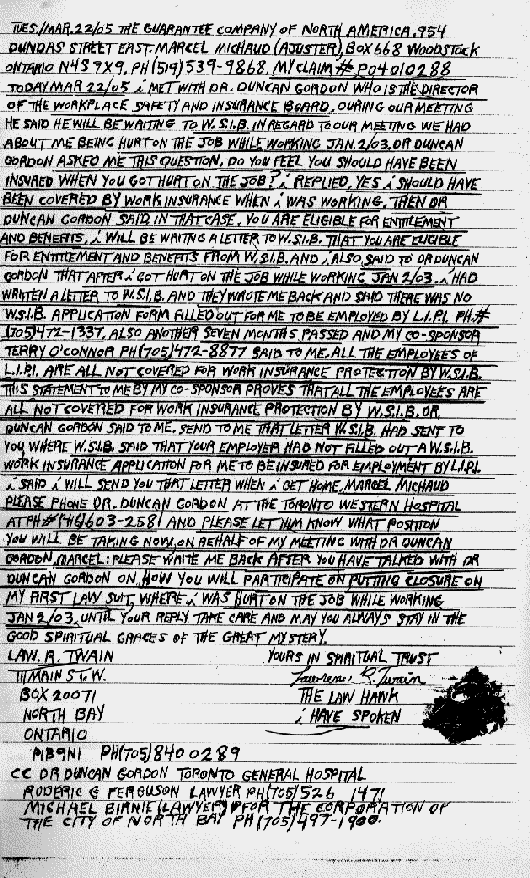 TUES/MAR.22/05 THE GUARANTEE COMPANY OF NORTH AMERICA.954
DUNDAS STREET EAST. MARCEL MICHAUD (AJUSTER), BOX 668 WOODSTOCK
ONTARIO N4S 7X9. PH(519)539-9868. MY CLAIM # P04010288
TODAY MAR 22/05 i MET WITH DR. DUNCAN GORDON WHO IS THE DIRECTOR
OF THE WORKPLACE SAFETY AND INSURANCE BOARD. DURING OUR MEETING
HE SAID HE WILL BE WAITING TO W.S.I.B. IN REGARD TO OUR MEETING WE HAD
ABOUT ME BEING HURT ON THE JOB WHILE WORKING JAN 2/03. DR DUNCAN
GORDON ASKED ME THIS QUESTION, DO YOU FEEL YOU SHOULD HAVE BEEN
INSURED WHEN YOU GOT HURT ON THE JOB? i REPLIED, YES i SHOULD HAVE
BEEN COVERED BY WORK INSURANCE WHEN i WAS WORKING. THEN DR
DUNCAN GORDON SAID IN THAT CASE. YOU ARE ELIGIBLE FOR ENTITLEMENT
AND BENEFITS, i WILL BE WAITNG A LETTER TO W.S.I.B. THAT YOU ARE ELIGIBLE
FOR ENTITLEMENT AND BENEFITS FROM W.S.I.B. AND i ALSO SAID TO DR DUNCAN
GORDON THAT AFTER i GOT HURT ON THE JOB WHILE WORKING JAN 2/03. i HAD
WRITTEN A LETTER TO W.S.I.B. AND THEY WROTE ME BACK AND SAID THERE WAS NO
W.S.I.B. APPLICATION FORM FILLED OUT FOR ME TO BE EMPLOYED BY L.I.P.I. PH.#
(705)472-1337. ALSO ANOTHER SEVEN MONTHS PASSED AND MY CO-SPONSOR
TERRY O'CONNOR PH(705)472-8877 SAID TO ME, ALL THE EMPLOYEES OF
L.I.P.I. ARE ALL NOT COVERED FOR WORK INSURANCE PROTECTION BY W.S.I.B.
THIS STATEMENT TO ME BY MY CO-SPONSOR PROVES THAT ALL THE EMPLOYEES ARE
ALL NOT COVERED FOR WORK INSURANCE PROTECTION BY W.S.I.B. DR.
DUNCAN GORDON SAID TO ME. SEND TO ME THAT LETTER W.S.I.B. HAD SENT TO
YOU, WHERE W.S.I.B. SAID THAT YOUR EMPLOYER HAD NOT FILLED OUT A W.S.I.B.
WORK INSURANCE APPLICATION FOR ME TO BE INSURED FOR EMPLOYMENT BY L.I.P.I.
i SAID i WILL SEND YOU THAT LETTER WHEN i GET HOME. MARCEL MICHAUD
PLEASE PHONE DR. DUNCAN GORDON AT THE TORONTO WESTERN HOSPITAL
AT PH# 603-2581 AND PLEASE LET HIM KNOW WHAT POSITION
YOU WILL BE TAKING NOW, ON BEHALF OF MY MEETING WITH DR DUNCAN
GORDON. MARCEL: PLEASE WRITE ME BACK AFTER YOU HAVE TALKED WITH DR
DUNCAN GORDON ON, HOW YOU WILL PARTICIPATE ON PUTTING CLOSURE ON
MY FIRST LAW SUIT, WHERE i WAS HURT ON THE JOB WHILE WORKING
JAN 2/03. UNTIL YOUR REPLY TAKE CARE AND MAY YOU ALWAYS STAY IN THE
GOOD SPIRITUAL GRACES OF THE GREAT MYSTERY.
LAW. R. TWAIN YOURS IN SPIRITUAL TRUST
111 MAIN ST. W. Lawrence R. Twain
BOX 20071 THE LAW HAWK
NORTH BAY i HAVE SPOKEN
ONTARIO
P1B9N1 PH(705)840 0289
CC DR DUNCAN GORDON TORONTO GENERAL HOSPITAL
RODERIC G FERGUSON LAWYER PH(705)526 1471
MICHAEL BIRNIE (LAWYER) FOR THE CORPORATION OF
THE CITY OF NORTH BAY PH (705)497-1900.